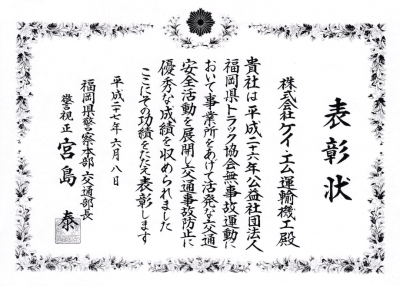 表彰状
株式会社ケイ・エム運輸機工殿
貴社は平成二十六年公益社団法人
福岡県トラック協会無事故運動に
おいて事業所をあげて活発な交通
安全活動を展開し交通事故防止に
優秀な成績を収められました
ここにその功績をたたえ表彰します
平成二十七年六月八日
福岡県警察本部交通部長
警視正 宮島 泰